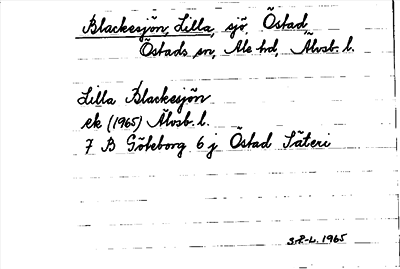 Blackesjön, Lilla, sjö, Östad
Östads sn, Ale hd, Älvsb. l.
Lilla Blackesjön
ek (1965) Älvsb. l.
7 B Göteborg 6 j Östad Säteri
S.P.-L. 1965